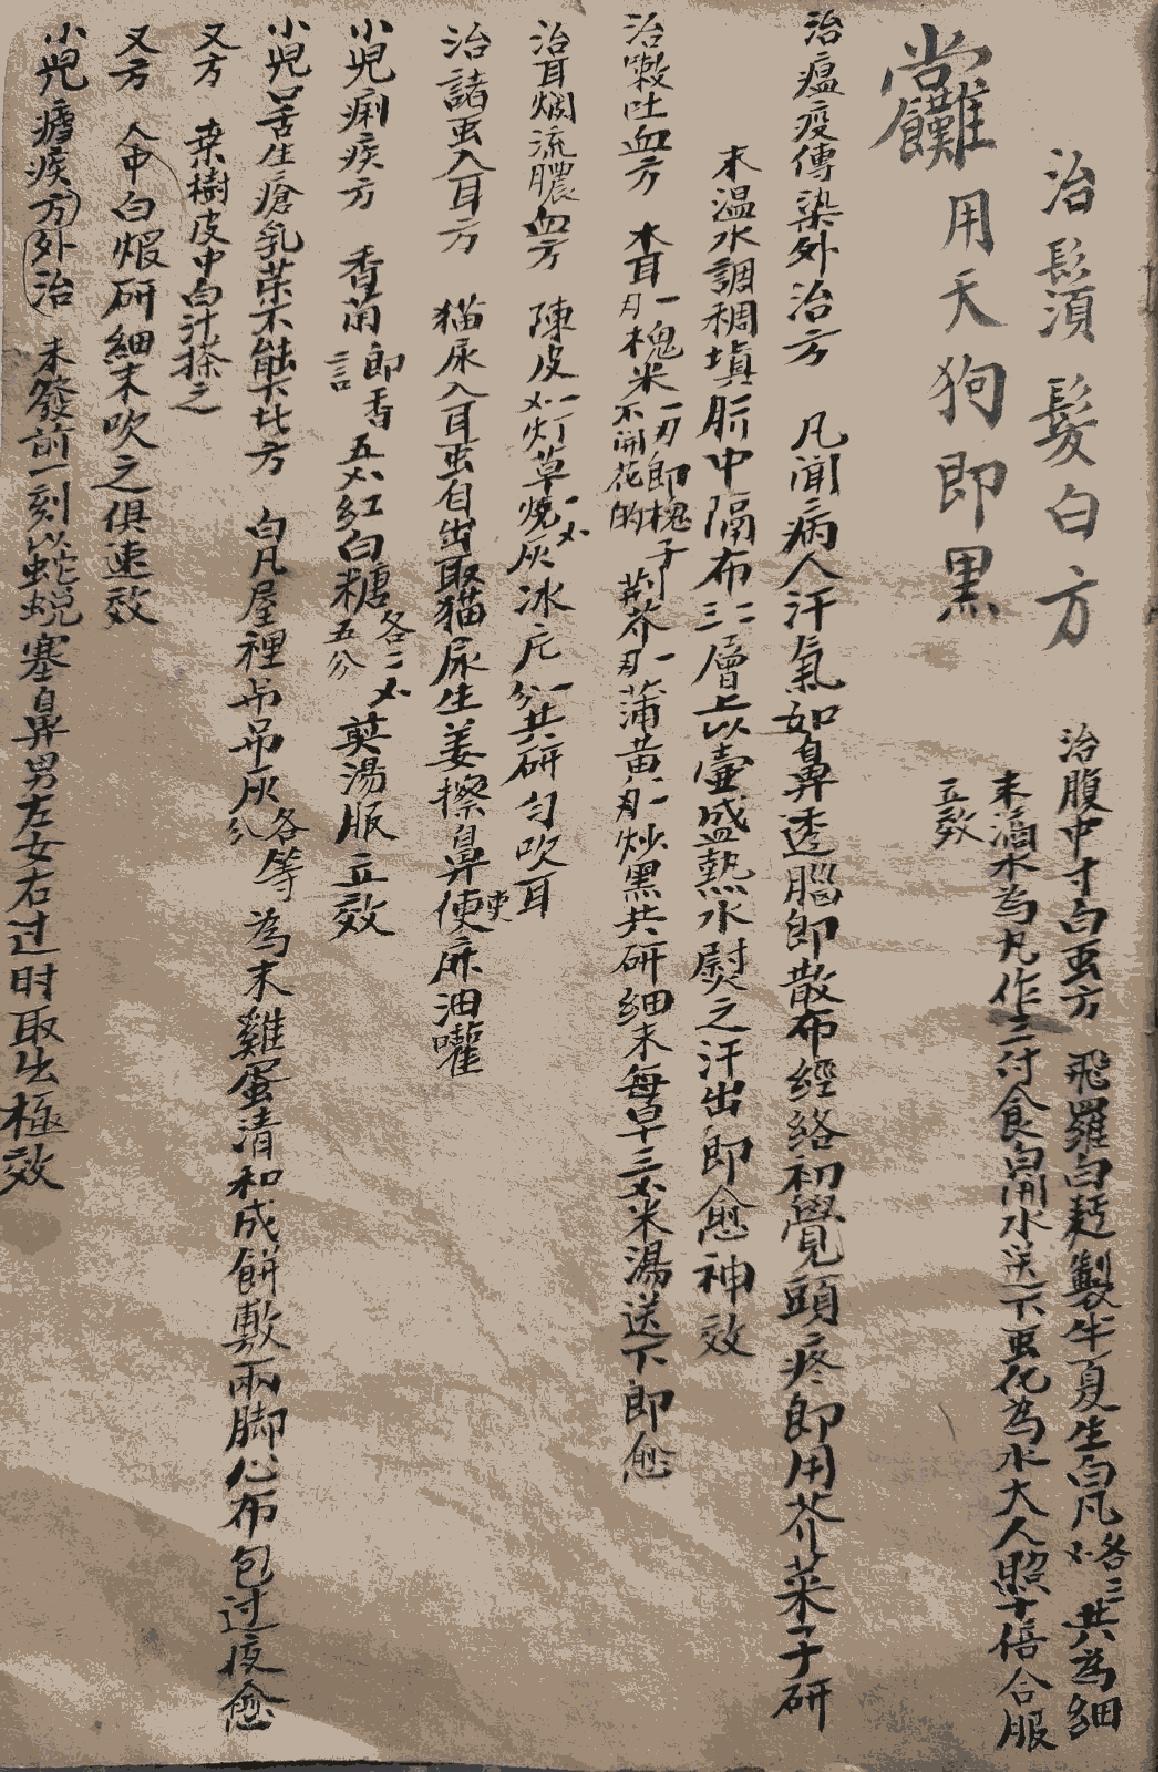 治鬍須髮白方
用天狗即黑
治腹中寸白虫方　飛羅白麪製半夏生白凡各三共為細
末滴水為凡作二付食白開水送下虫化為水大人照十倍合服
立效
治瘟疫傳染外治方　凡聞病人汗氣如鼻透腦即散布經絡初覺頭疼即用芥菜子研
末温水調稠填肵中隔布二三層上以壺盛熱水熨之汗出即愈神效
治嗽吐血方　木耳一刃槐米一刃即槐子不開花的荊芥一刃蒲黄一刃炒黑共研細末每早三米湯送下即愈
治耳爛流膿血方　陳皮一灯草燒灰一冰片一分共研匀吹耳
治諸虫入耳方　猫尿入耳虫自出取猫尿生姜擦鼻便使麻油嚾
小兒痢疾方　香薷即香五紅白糖各二五分煎湯服立效
小兒口舌生瘡乳茶不能下此方　白凡屋裡吊吊灰各等分為末雞蛋清和成餅敷兩脚心布包过夜愈
又方　桒樹皮中白汁搽之
又方　人中白煅研細末吹之俱速效
小兒瘧疾方外治　未發前一刻以蛇蜕塞鼻男左女右过时取出極效